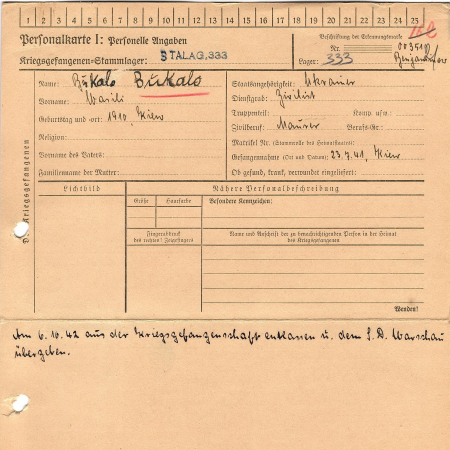 1 2 3 4 5 6 7 8 9 10 11 12 13 14 15 16 17 18 19 20 21 22 23 24 25
Personalkarte I: Personelle Angaben
Kriegsgefangenen-Stammlager: STALAG 333
Beschriftung der Erkennungsmarke
Nr.
Lager: 333
Des Kriegsgefangenen
Name: Bukalo Bukalo
Vorname: Wasili
Geburtstag und -ort: 1910, Kiew
Religion:
Vorname des Vaters:
Familienname der Mutter:
Staatsangehörigkeit: Ukrainer
Dienstgrad: Zivilist
Truppenteil: Komp. usw.:
Zivilberuf: Maurer Berufs-Gr.:
Matrikel Nr. (Stammrolle des Heimatstaates):
Gefangennahme (Ort und Datum): 23.7.41, Kiew
Ob gesund, krank, verwundet eingeliefert:
Lichtbild
Nähere Personalbeschreibung
Größe Haarfarbe Besondere Kennzeichen:
Fingerabdruck
des rechten! Zeigefingers
Name und Anschrift der zu benachrichtigenden Person in der Heimat
des Kriegsgefangenen
Wenden!
Am 6.10.42 aus der Kriegsgefangenschaft entlassen u. dem S.D. Warschau
übergeben.